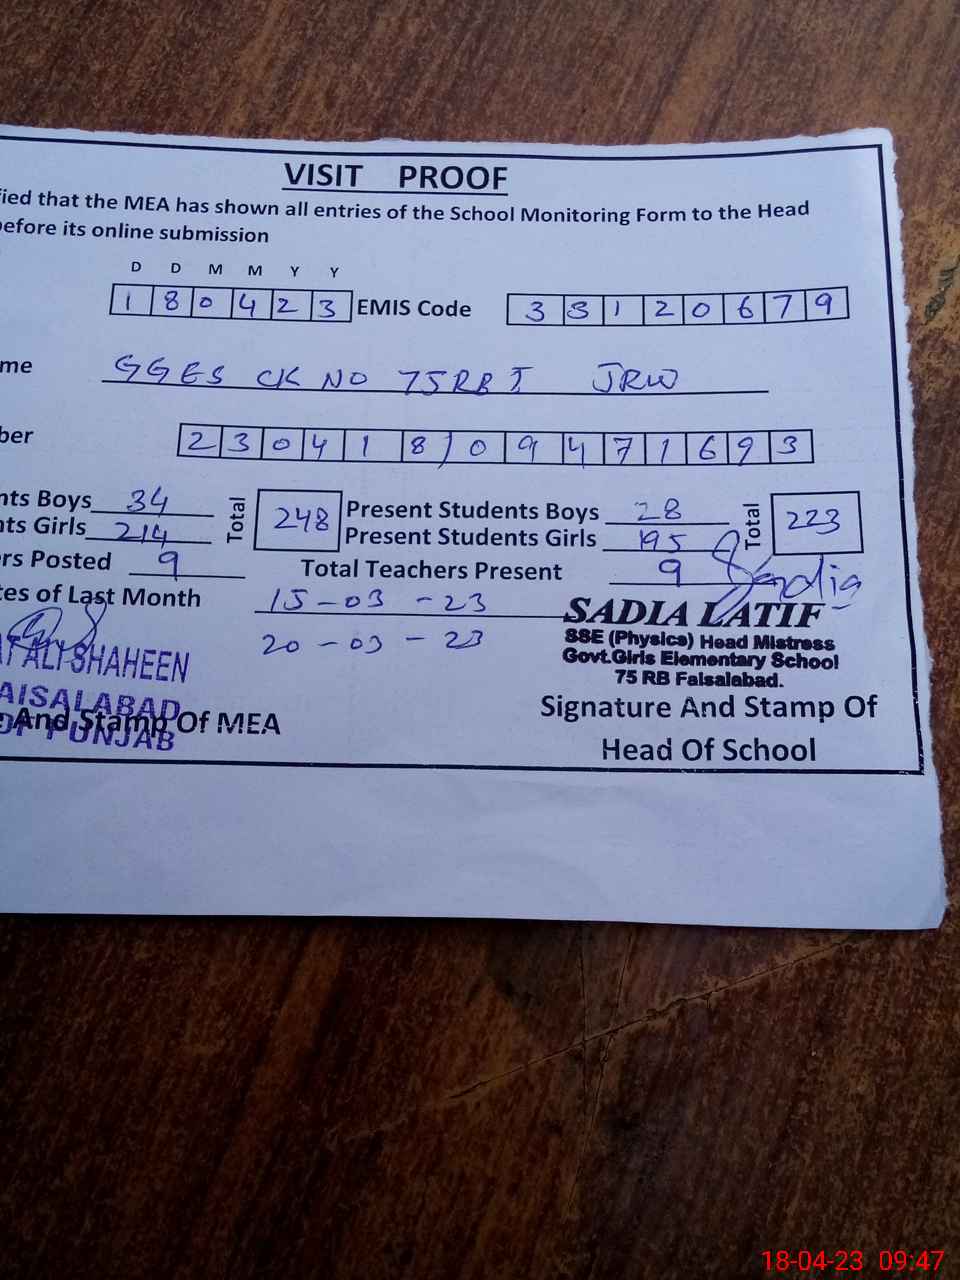 VISIT PROOF
fied that the MEA has shown all entries of the School Monitoring Form to the Head
before its online submission
D D M M Y Y
1 8 0 4 2 3 EMIS Code 3 3 1 2 0 6 7 9
me GGES CK NO 75RB I JRW
ber 2 3 0 4 1 8 / 0 9 4 7 1 6 9 3
nts Boys 34 Total 248 Present Students Boys 28 Total 223
nts Girls 214 Present Students Girls 195
rs Posted 9 Total Teachers Present 9 Sadia
tes of Last Month 15-03-23
20-03-23
SADIA LATIF
SSE (Physics) Head Mistress
Govt.Girls Elementary School
75 RB Faisalabad.
AT ALI SHAHEEN
AISALABAD
OF PUNJAB
And Stamp Of MEA
Signature And Stamp Of
Head Of School
18-04-23 09:47